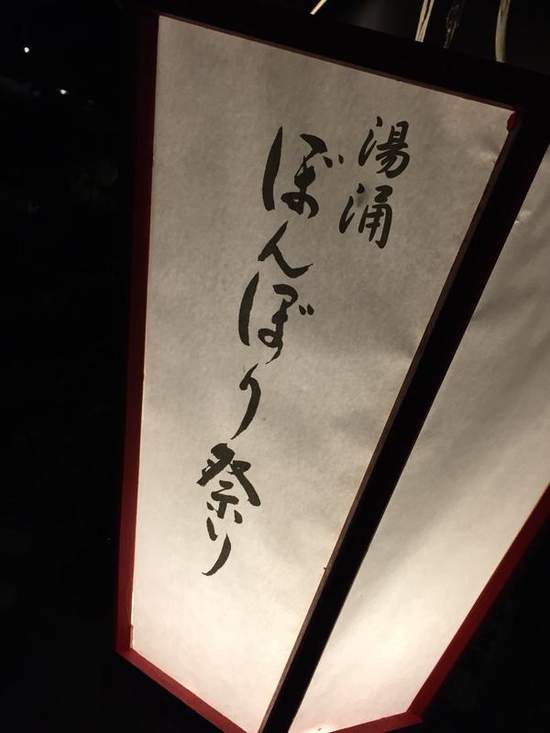 湯涌
ぼんぼり祭り